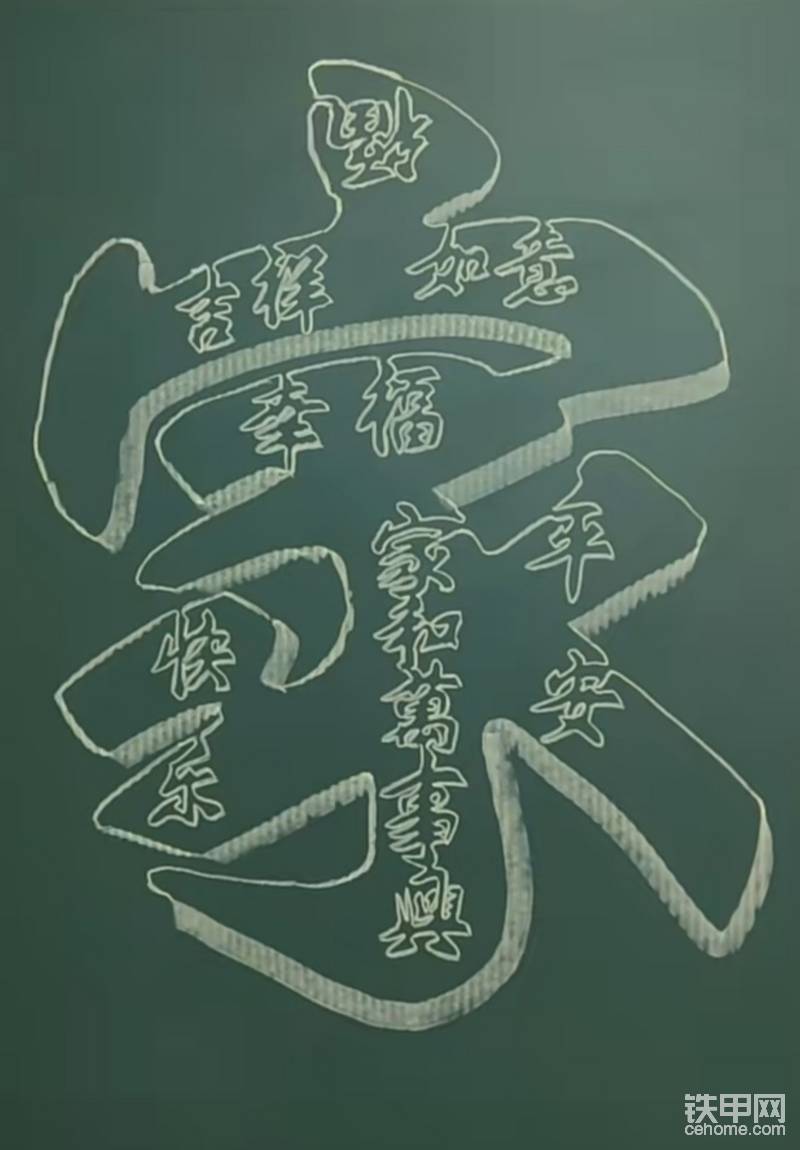 家
吉祥
如意
幸福
平安
快乐
家和萬事興
铁甲网
cehome.com